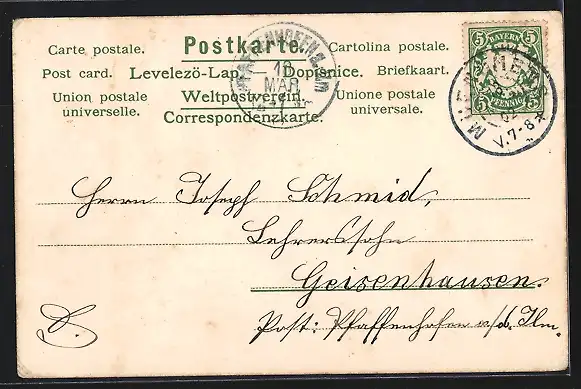 Carte postale. Postkarte. Cartolina postale.
Post card. Levelezö-Lap. Dopisnice. Briefkaart.
Union postale universelle. Weltpostverein. Unione postale universale.
Correspondenzkarte.
5 BAYERN 5
5 PFENNIG 5
18
MAR
V.7-8
Herrn Joseph Schmid,
Lehrerssohn
Geisenhausen.
Post: Pfaffenhofen a/d. Ilm.